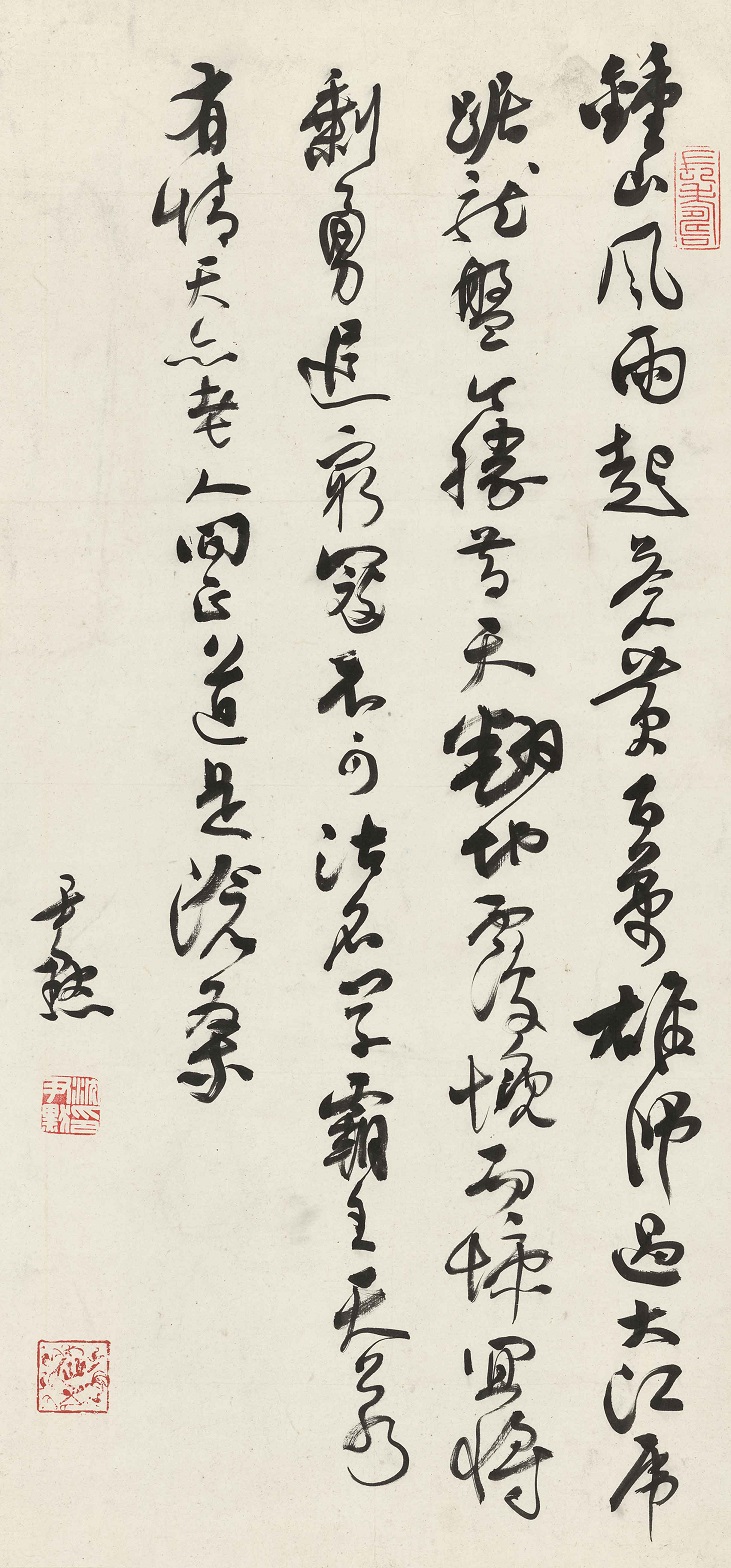 鍾山風雨起蒼黄百萬雄師過大江虎
踞龍盤今勝昔天翻地覆慨而慷宜將
剩勇追窮寇不可沽名學霸王天若
有情天亦老人間正道是滄桑
尹默
沈印尹默